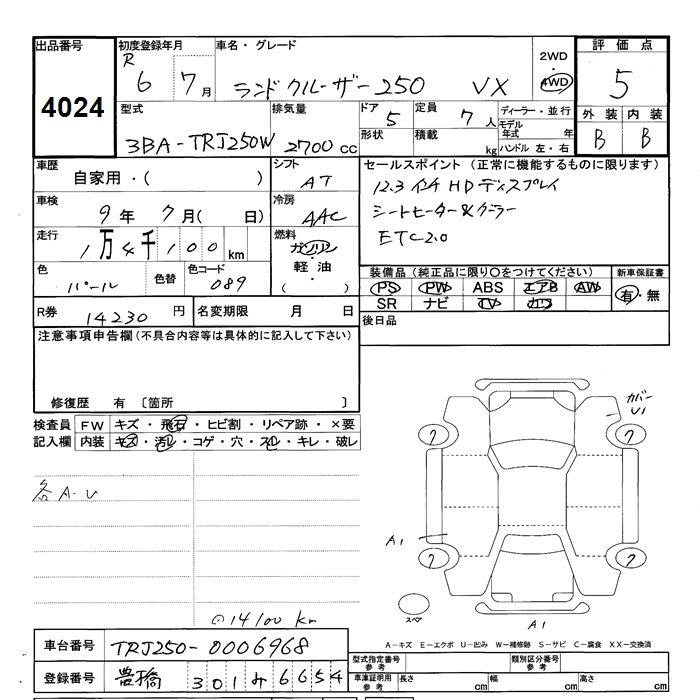 出品番号 初度登録年月 車名・グレード 2WD 評価点
4024 R 6 7月 ランドクルーザー250 VX 4WD 5
型式 排気量 ドア 定員 ディーラー・並行 外装 内装
3BA-TRJ250W 2700cc 5 7人 モデル年式 年 B B
形状 積載 kg ハンドル 左・右
車歴 シフト セールスポイント(正常に機能するものに限ります)
自家用・( ) AT 12.3インチHDディスプレイ
車検 冷房 シートヒーター&クーラー
9年 7月( 日) AAC ETC2.0
走行 燃料
1万4千100km ガソリン
軽油
・
( )
色 色替 色コード 装備品(純正品に限り○をつけてください) 新車保証書
パール 089 PS PW ABS エアB AW 有・無
SR ナビ TV カワ
R券 14230円 名変期限 月 日 後日品
注意事項申告欄(不具合内容等は具体的に記入して下さい)
修復歴 有 〔箇所 〕
検査員 FW キズ・飛石・ヒビ割・リペア跡・×要
記入欄 内装 キズ・汚レ・コゲ・穴・スレ・キレ・破レ
カバー
U1
7 7
各A-U
A1
7 7
スペア
A1
@14100km
A-キズ E-エクボ U-凹み W-補修跡 S-サビ C-腐食 XX-交換済
車台番号 TRJ250-0006968 型式指定番号 参考 類別区分番号 参考
登録番号 豊橋 301み6654 車庫証明用 参考 長さ cm 幅 cm 高さ cm